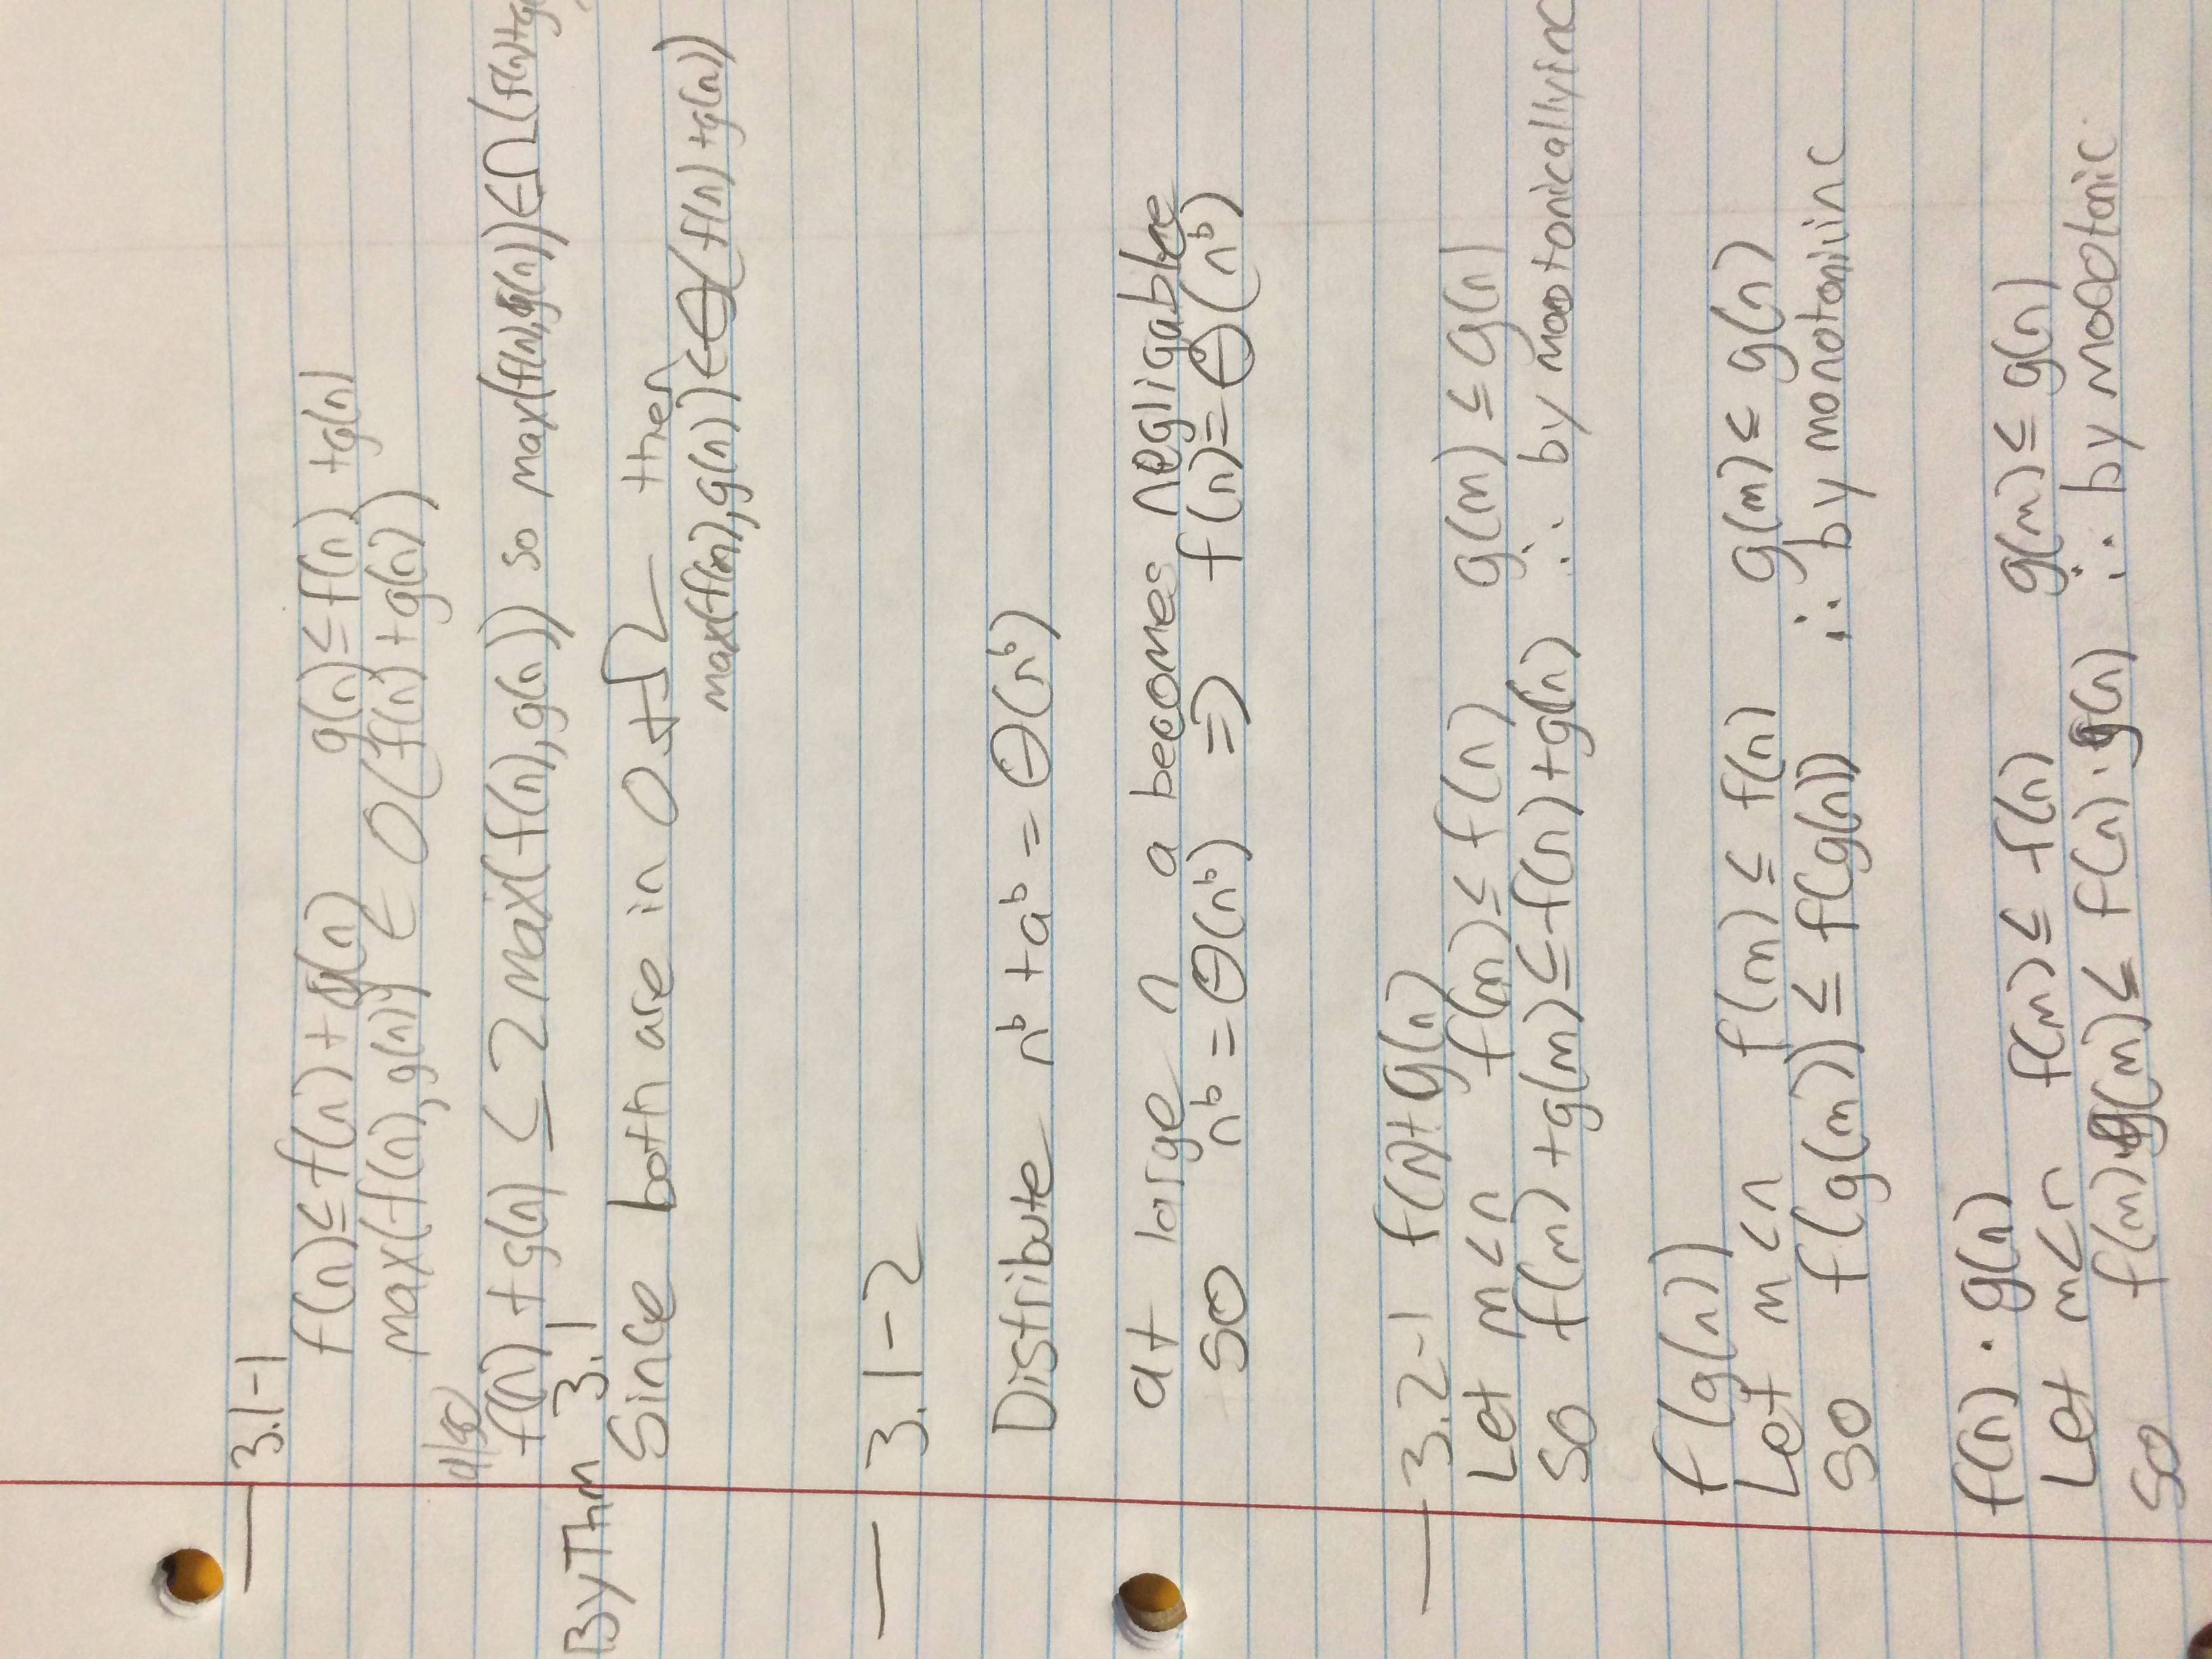 3.1-1
f(n) ≤ f(n) + g(n)    g(n) ≤ f(n) + g(n)
max(f(n), g(n)) ∈ O(f(n) + g(n))
also
f(n) + g(n) ≤ 2 max(f(n), g(n)) so max(f(n), g(n)) ∈ Ω(f(n)+g(
By Thm 3.1
Since both are in O + Ω then
max(f(n), g(n)) ∈ Θ(f(n) + g(n))
3.1-2
Distribute n^b + a^b = Θ(n^b)
at large n a becomes negligable
so n^b = Θ(n^b) ⇒ f(n) = Θ(n^b)
3.2-1 f(n) + g(n)
Let m < n    f(m) ≤ f(n)    g(m) ≤ g(n)
so f(m) + g(m) ≤ f(n) + g(n) ∴ by mootonically inc
f(g(n))
Let m < n    f(m) ≤ f(n)    g(m) ≤ g(n)
so f(g(m)) ≤ f(g(n)) ∴ by monotonic inc
f(n) · g(n)
Let m < n    f(m) ≤ f(n)    g(m) ≤ g(n)
so f(m) · g(m) ≤ f(n) · g(n) ∴ by monotonic